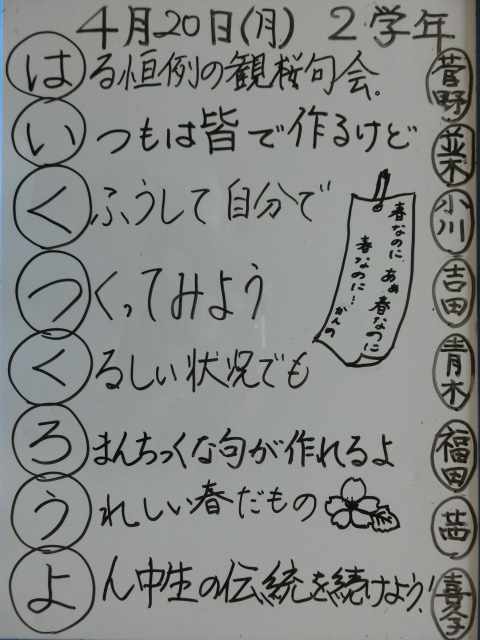 4月20日(月) 2学年
はる恒例の観桜句会。
いつもは皆で作るけど
くふうして自分で
つくってみよう
くるしい状況でも
ろまんちっくな句が作れるよ
うれしい春だもの
よん中生の伝統を続けよう!
春なのに、ああ春なのに
春なのに…
かんの
菅野
並木
小川
吉田
青木
福田
茜
喜子